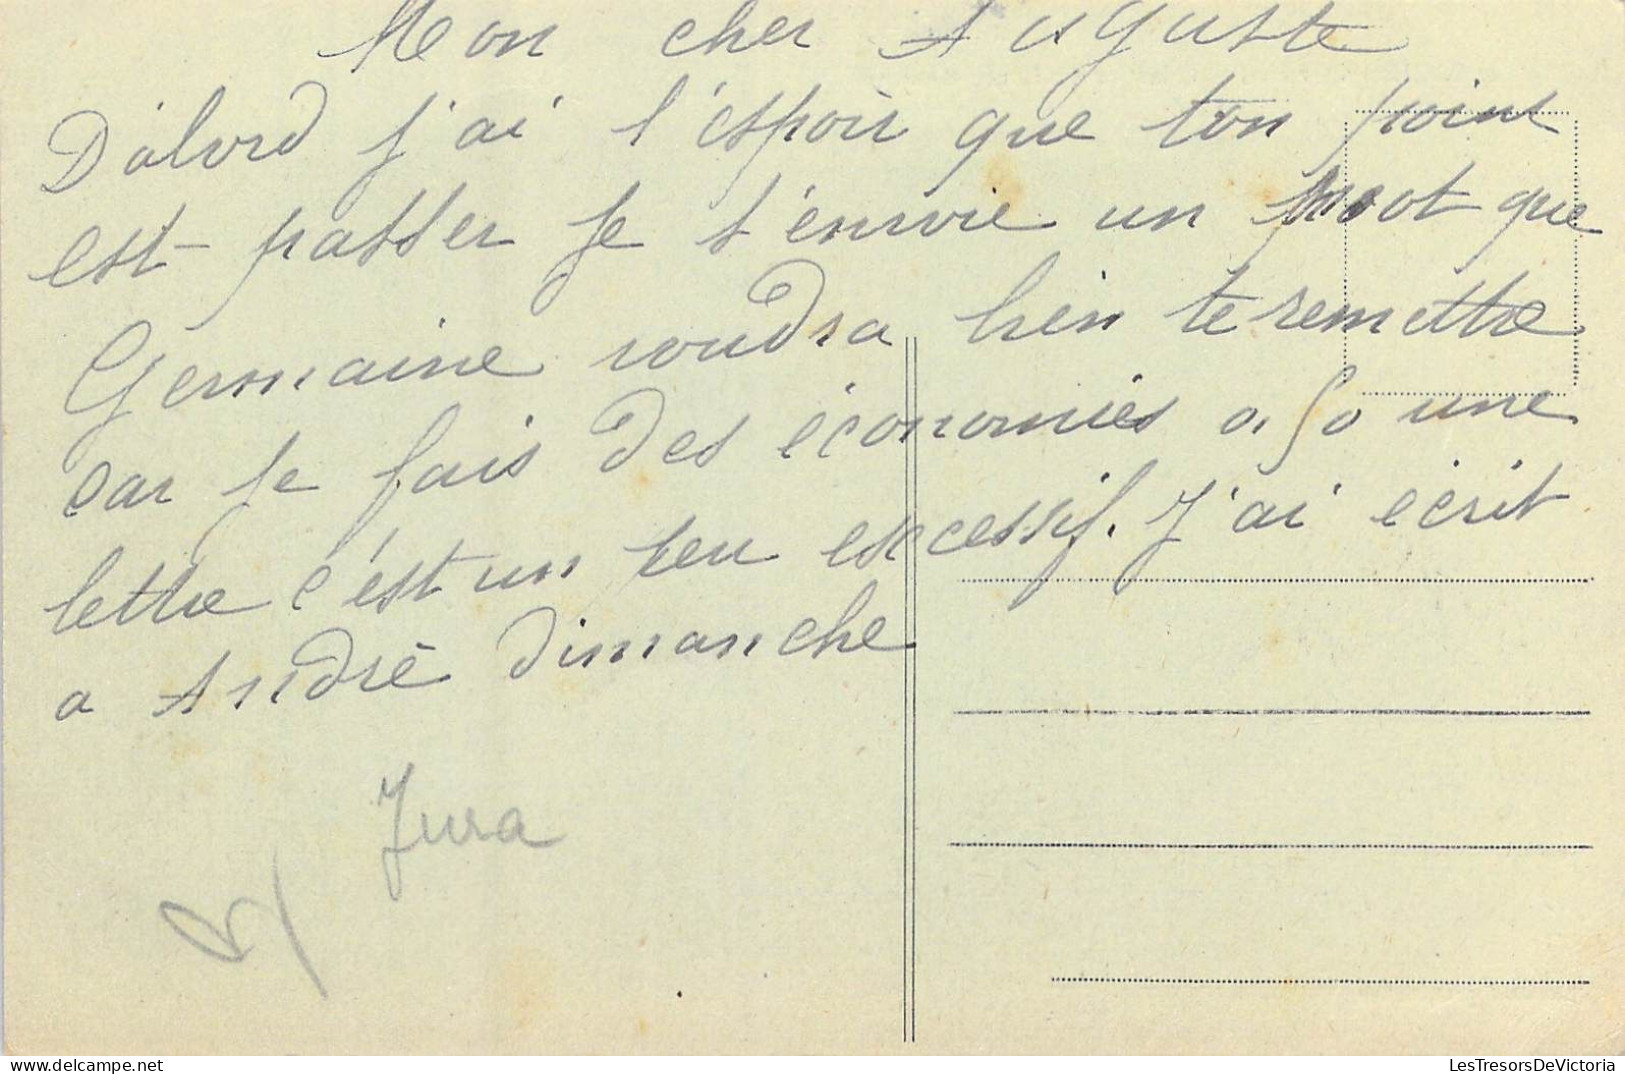 Mon cher Auguste
D'abord j'ai l'espoir que ton point
est passer je t'envoie un mot que
Germaine voudra bien te remettre
car je fais des économies 0.50 une
lettre c'est un peu excessif. J'ai écrit
a André dimanche
Jura
LesTresorsDeVictoria